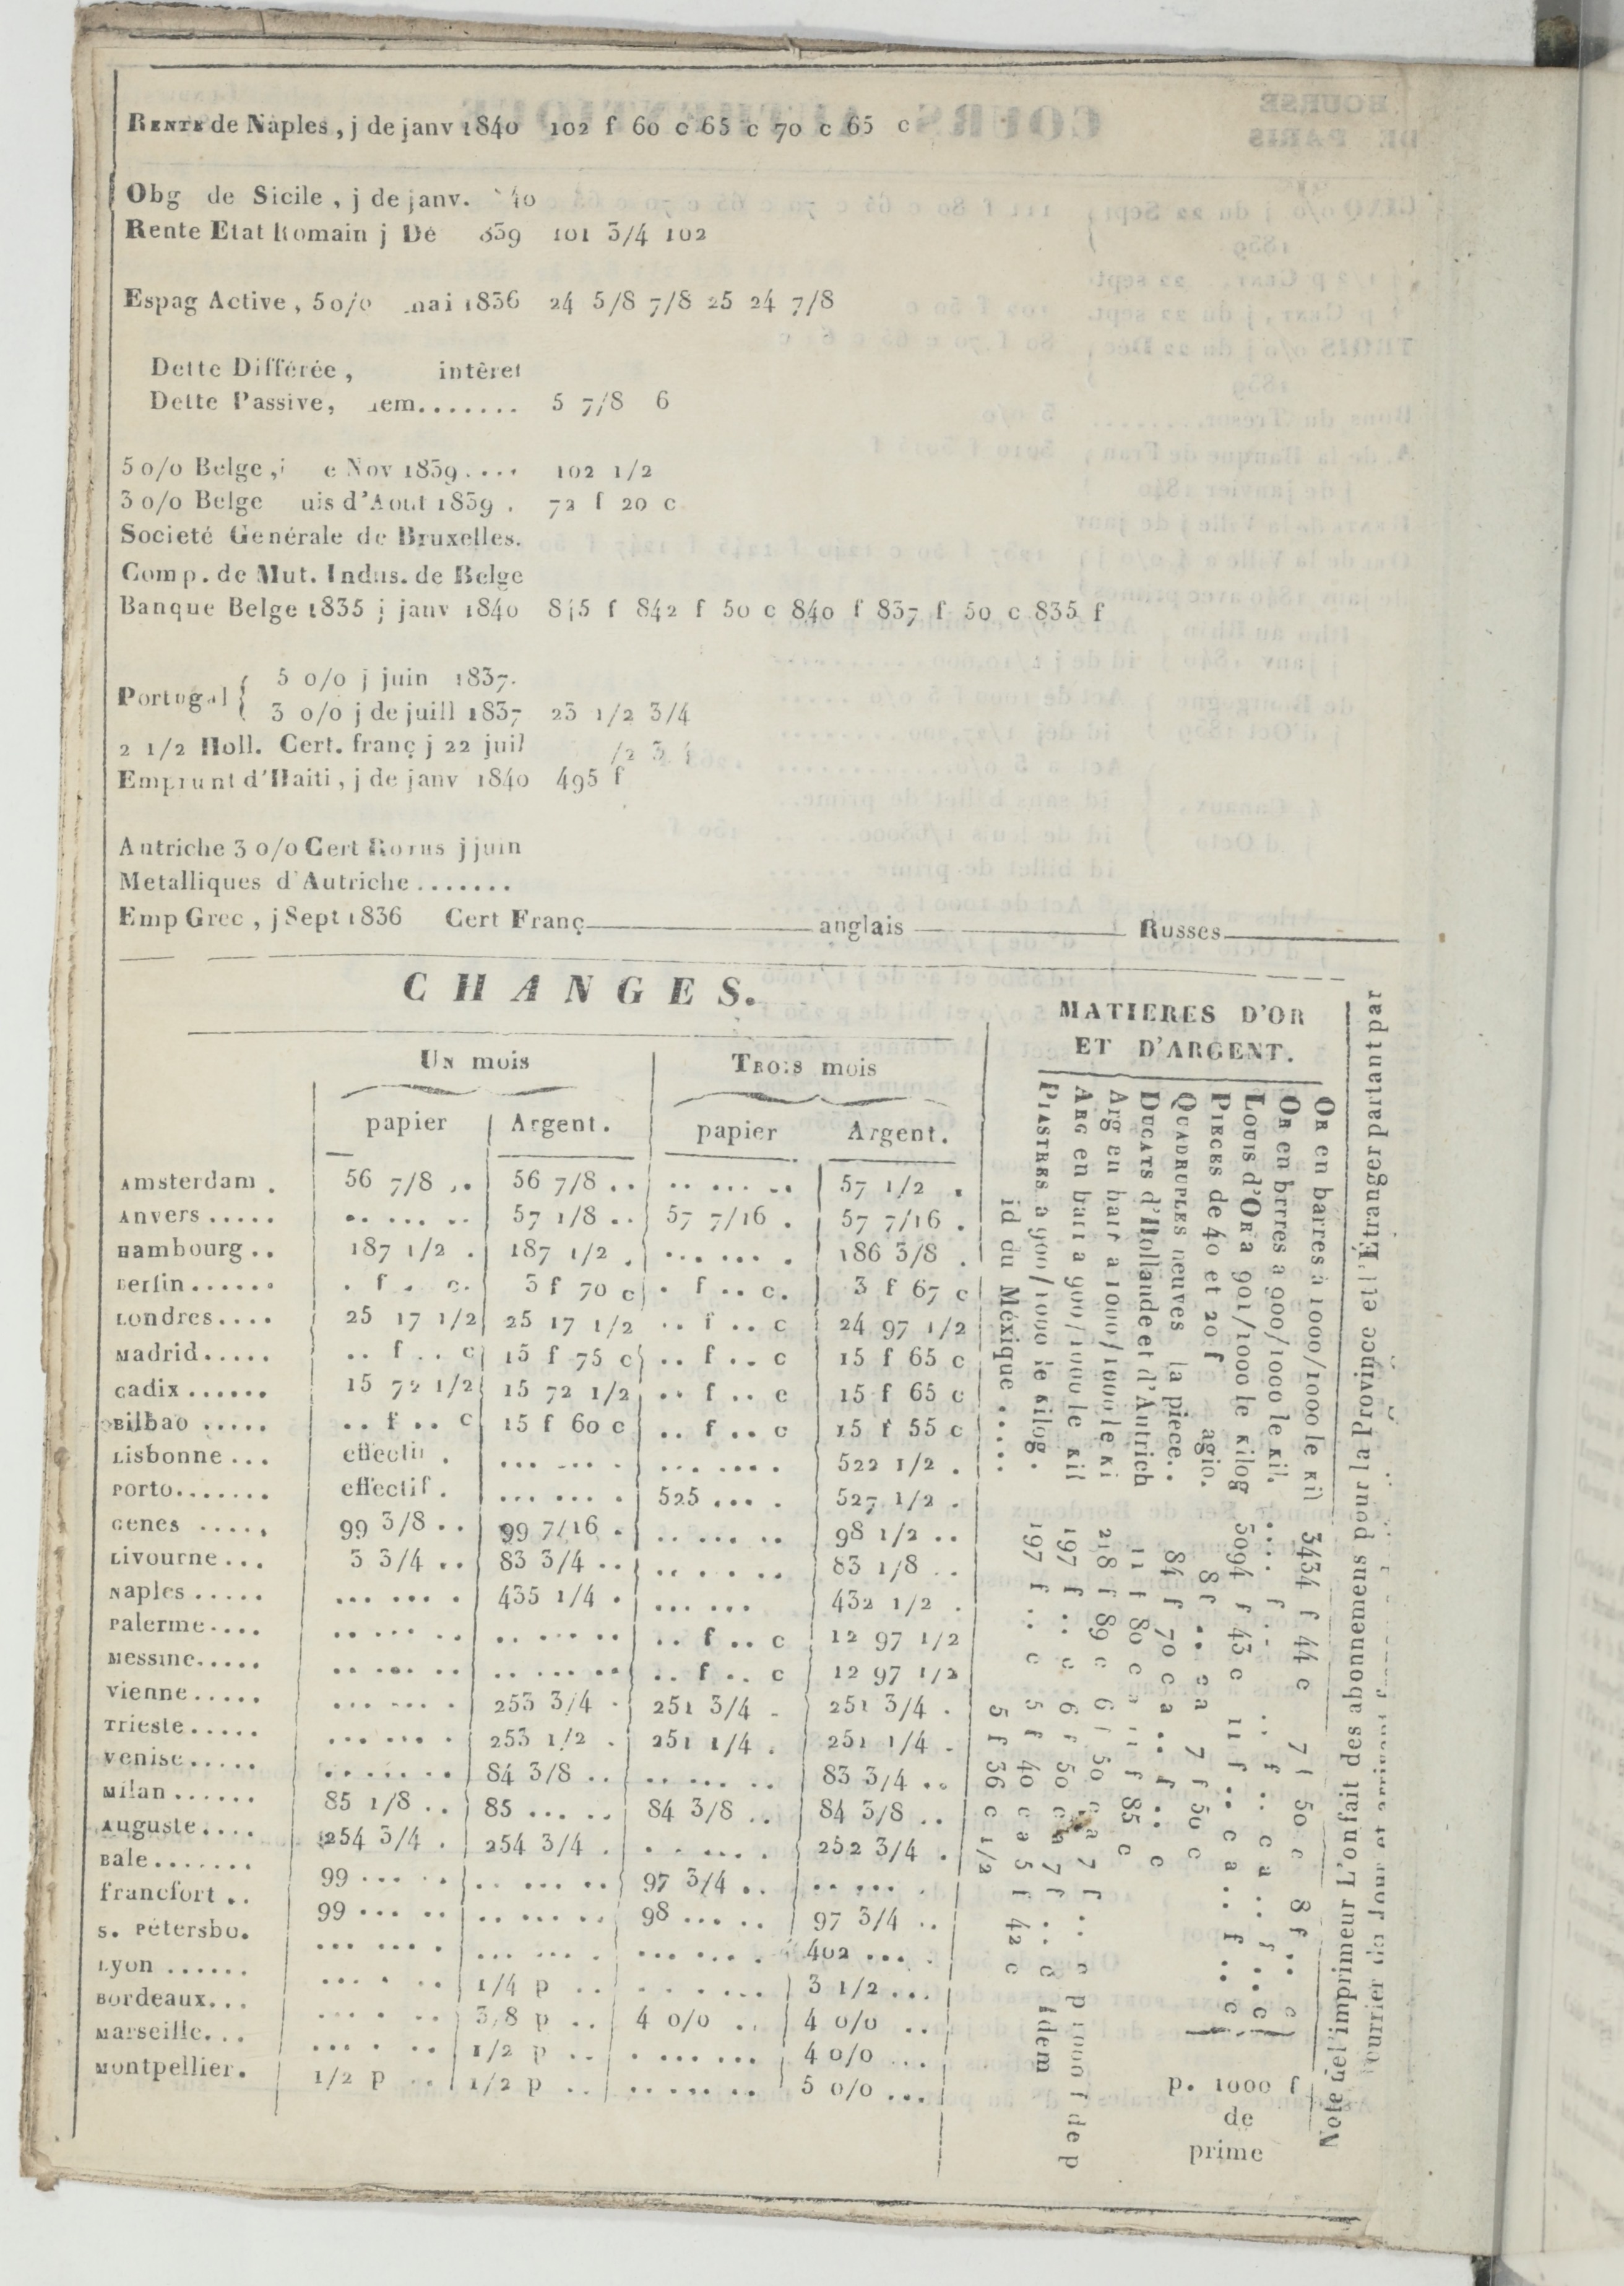 RENTE de Naples, j de janv 1840 102 f 60 c 65 c 70 c 65 c
Obg de Sicile, j de janv. 40
Rente Etat Romain j Dé 839 101 3/4 102
Espag Active, 5 o/o mai 1836 24 5/8 7/8 25 24 7/8
Dette Différée, intèret
Dette Passive, em....... 5 7/8 6
5 o/o Belge, e Nov 1839.... 102 1/2
3 o/o Belge uis d'Aout 1839. 72 f 20 c
Societé Genérale de Bruxelles.
Comp. de Mut. Indus. de Belge
Banque Belge 1835 j janv 1840 845 f 842 f 50 c 840 f 837 f 50 c 835 f
Portugal { 5 o/o j juin 1837.
3 o/o j de juill 1837 23 1/2 3/4
2 1/2 Holl. Cert. franç j 22 juil /2 3 4
Emprunt d'Haiti, j de janv 1840 495 f
Autriche 3 o/o Cert j juin
Metalliques d'Autriche.......
Emp Grec, j Sept 1836 Cert Franç anglais Russes
CHANGES.
Un mois Trois mois
papier Argent. papier Argent.
Amsterdam . 56 7/8 .. 56 7/8 .. .. ... .. 57 1/2 .
Anvers ..... .. ... .. 57 1/8 .. 57 7/16 . 57 7/16 .
Hambourg .. 187 1/2 . 187 1/2 . ... ... . 186 3/8 .
Berlin ...... . f . c. 3 f 70 c . f .. c. 3 f 67 c
Londres.... 25 17 1/2 25 17 1/2 .. f .. c 24 97 1/2
Madrid..... .. f .. c 15 f 75 c .. f .. c 15 f 65 c
Cadix ...... 15 72 1/2 15 72 1/2 .. f .. c 15 f 65 c
Bilbao ..... .. f .. c 15 f 60 c .. f .. c 15 f 55 c
Lisbonne ... effectif . ... ... . ... .... 522 1/2 .
Porto....... effectif . ... ... . 525 ... . 527 1/2 .
Genes ..... 99 3/8 .. 99 7/16 . .. ... .. 98 1/2 ..
Livourne ... 3 3/4 .. 83 3/4 .. .. ... .. 83 1/8 ..
Naples ..... ... ... . 435 1/4 . ... ... 432 1/2 .
Palerme.... .. ... .. .. ... .. .. f .. c 12 97 1/2
Messine..... .. ... .. .. ... .. .. f .. c 12 97 1/2
Vienne ..... ... ... . 253 3/4 . 251 3/4 . 251 3/4 .
Trieste ..... ... ... . 253 1/2 . 251 1/4 . 251 1/4 .
Venise ..... .. ... .. 84 3/8 .. .. ... .. 83 3/4 ..
Milan ...... 85 1/8 .. 85 ... .. 84 3/8 .. 84 3/8 ..
Auguste.... 254 3/4 . 254 3/4 . . ... . 252 3/4 .
Bale ....... 99 ... .. .. ... .. 97 3/4 .. .. ... .
francfort .. 99 ... .. .. ... .. 98 ... .. 97 3/4 ..
S. Pétersbo. ... ... . ... ... . ... ... . 402 ... .
Lyon ...... ... . .. 1/4 p .. . ... ... 3 1/2 ...
Bordeaux... ... . .. 3/8 p .. 4 o/o .. 4 o/o ..
Marseille... ... . .. 1/2 p .. . ... ... 4 o/o ...
Montpellier. 1/2 p .. 1/2 p .. .. ... .. 5 o/o ...
MATIERES D'OR
ET D'ARGENT.
OR en barres à 1000/1000 le kil 3434 f 44 c 7 f 50 c 8 f .. c
OR en brres a 900/1000 le kil. ... f .. .. f .. c a .. f .. c
LOUIS d'OR a 901/1000 le kilog 3094 f 43 c 11 f .. c a .. f .. c
PIECES de 40 et 20 f agio. 8 f .. c a 7 f 50 c
QUADRUPLES neuves la piece.. 84 f 70 c a .. f .. c
DUCATS d'Hollande et d'Autrich 11 f 80 c a 11 f 85 c
Arg en bar a 1000/1000 le ki 218 f 89 c 6 f 50 c a 7 f .. c p 1000 f de p
ARG en barr a 900/1000 le kil 197 f .. c 6 f 50 c a 7 f .. c idem
PIASTRES a 900/1000 le kilog. 197 f .. c 5 f 40 c a 5 f 42 c
id du Méxique ..... 5 f 36 c 1/2
p. 1000 f
de
prime
Note del'imprimeur L'onfait des abonnemens pour la Province et l'Étranger partant par
ourrier du Jour et arrivant